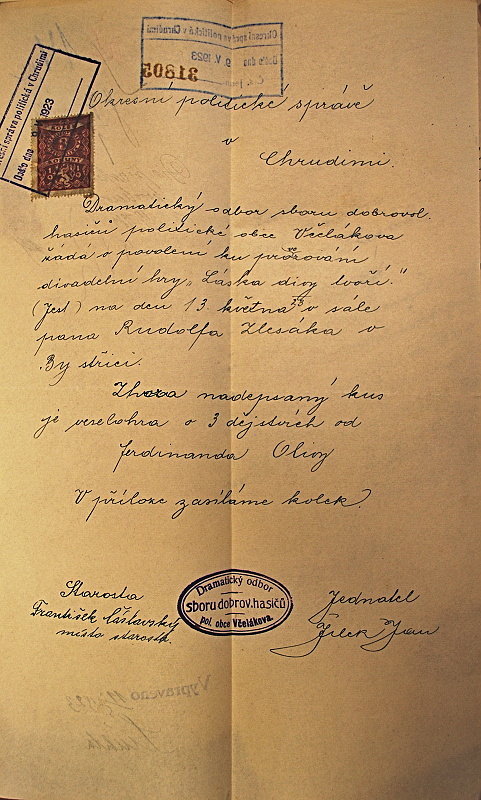 Okresní správa politická v Chrudimi
Došlo dne 9. V. 1923
31805
správa politická v Chrudimi
Došlo dne 1923
Okresní politické správě
v
Chrudimi.
Dramatický odbor sboru dobrovol.
hasičů politické obce Včelákova
žádá o povolení ku provozování
divadelní hry „Láska divy tvoří.“
(Jest) na den 13. května 23 v sále
pana Rudolfa Zlesáka v
Bystřici.
nadepsaný kus
je veselohra o 3 dějstvích od
Ferdinanda Olivy
V příloze zasíláme kolek?
Starosta
František
místo starosta.
Dramatický odbor
sboru dobrov. hasičů
pol. obce Včelákova.
Jednatel
Jílek Jan
Vypraveno